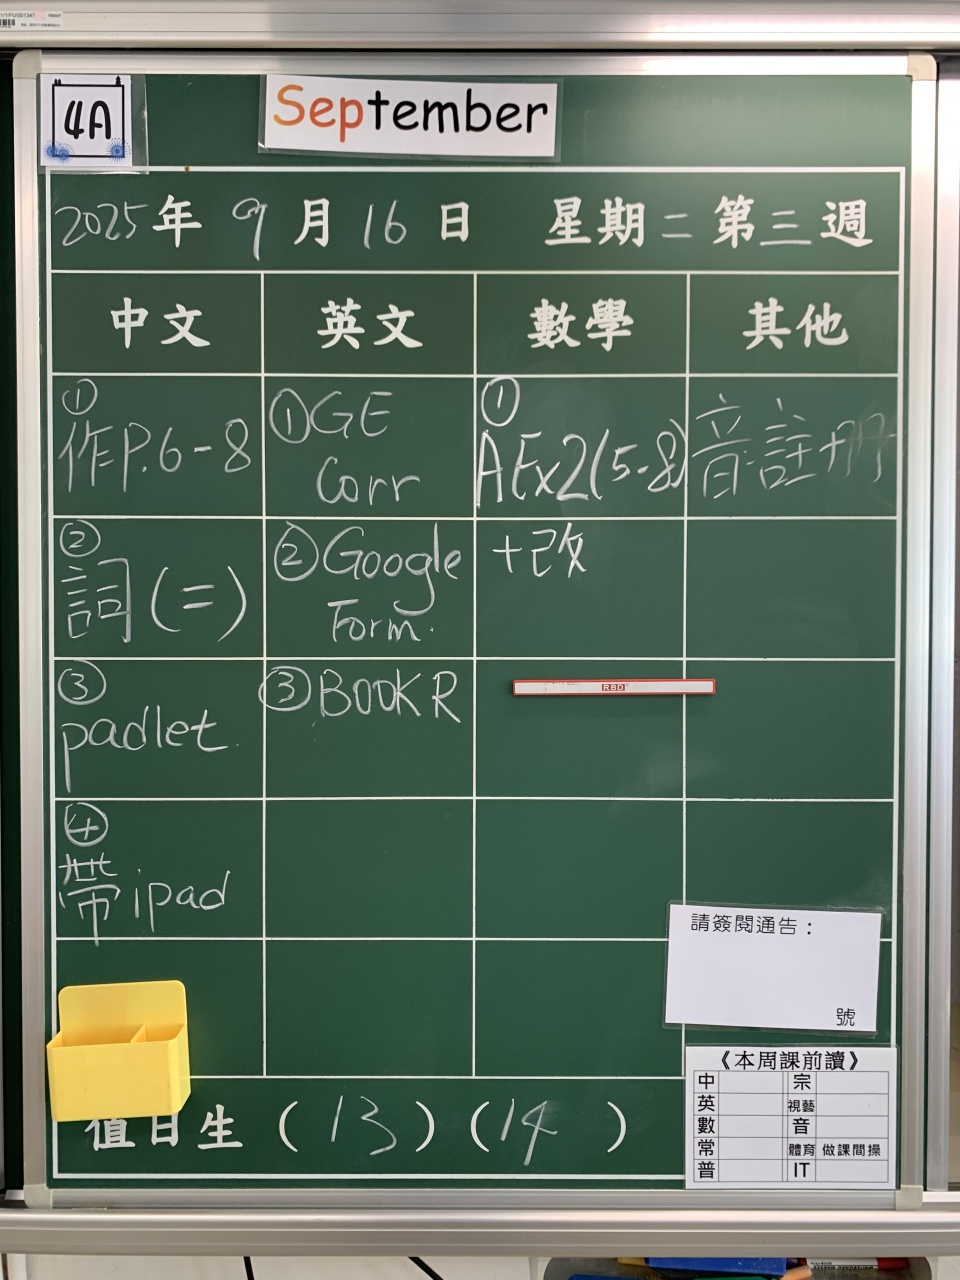 4A
September
2025年 9月16日 星期二 第三週
中文 英文 數學 其他
①
作P.6-8
①GE
Corr
①
AEx2(5-8)
音註冊
②
詞(二)
②Google
Form.
+改
③
padlet
③BOOK R
RBD
④
帶ipad
請簽閱通告：
號
值日生 (13) (14)
《本周課前讀》
中 宗
英 視藝
數 音
常 體育 做課間操
普 IT